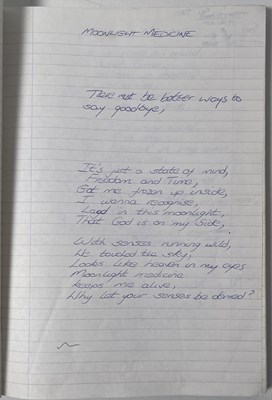 MOONLIGHT MEDICINE
There must be better ways to
say goodbye,
It's just a state of mind,
Freedom and Time,
Got me frozen up inside,
I wanna recognise,
Land in this moonlight,
That God is on my side,
With senses running wild,
We touched the sky,
Looks like heaven in my eyes
Moonlight medicine
keeps me alive,
Why let your senses be denied?
~